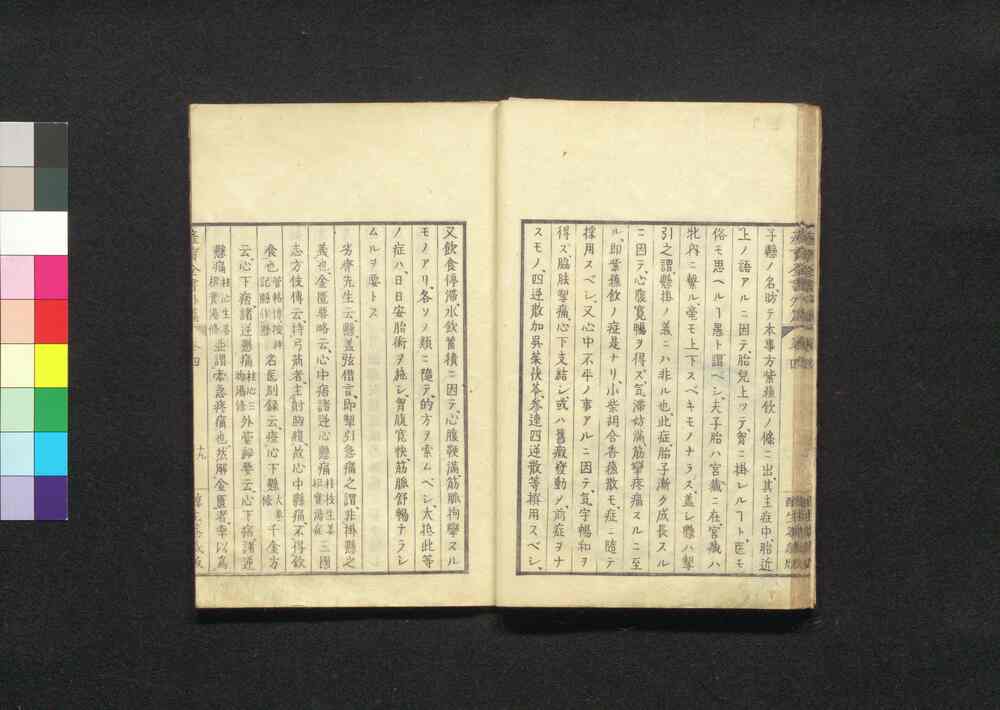 子懸ノ名、昉テ本事方紫蘓飲ノ條ニ出、其主症中、胎近
上ノ語アルニ因テ、胎兒上ツテ、胷ニ掛レル丁ト、医モ
俗モ思ヘル丁愚ト謂ベシ、夫子胎ハ宮藏ニ在、宮藏ハ
牝内ニ繋ル、毫モ上下スベキモノナラス、蓋シ懸ハ掣
引之謂、懸掛ノ義ニハ非ル也、此症、胎子漸ク成長スル
ニ因テ、心腹寛暢ヲ得ズ、気滞妨滿、筋攣疼痛スルニ至
ル、即紫蘓飲ノ症是ナリ、小柴胡合香蘓散モ、症ニ隨テ
採用スベシ、又心中不平ノ事アルニ因テ、気宇暢和ヲ
得ズ、脇肋掣痛、心下支結シ、或ハ舊癥變動ノ、前症ヲナ
スモノ、四逆散加呉茱茯苓、参連四逆散等撰用スベシ、
又飲食停滞、水飲蓄積ニ因テ、心腹鞕滿、筋脈拘攣スル
モノアリ、各ソノ類ニ隨テ、的方ヲ索ムベシ、大抵此等
ノ症ハ、日日安胎術ヲ施シ、胷腹寛快、筋脈舒暢ナラシ
ムルヲ要トス
劣齊先生云、懸、蓋弦借言、即掣引急痛之謂、非掛懸之
義也、金匱要略云、心中痞、諸逆、心懸痛、桂枝生姜枳實湯條 三國
志方伎傳云、持弓箭者、主射胸腹、故心中懸痛、不得飲
食也、管輅傳 名医別録云、疰心下懸 大棗條 千金方
云、心下痞、諸逆懸痛、桂心三物湯條 外薹祕要云、心下痞、諸逆
懸痛、桂心生姜枳實湯條 並謂牽急疼痛也、然解金匱者、率以爲
産育全書外篇
四
十九